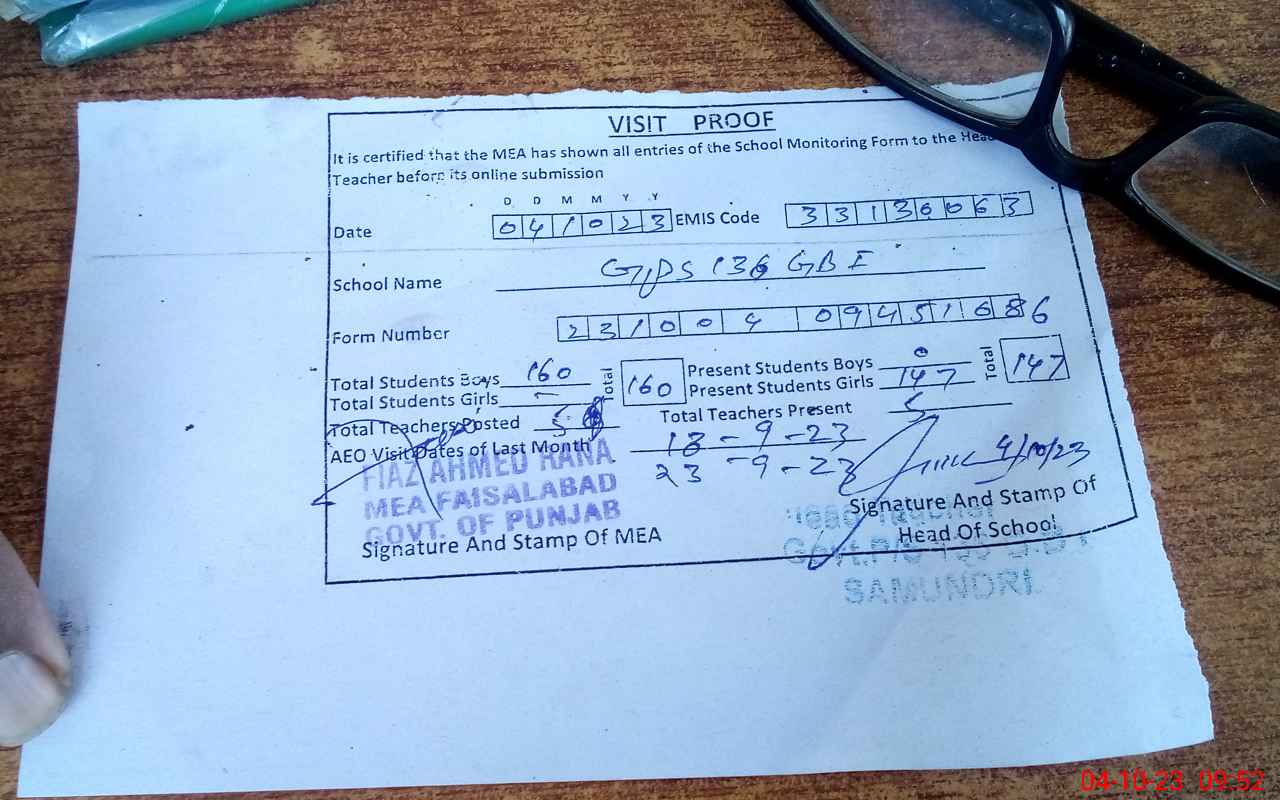 VISIT PROOF
It is certified that the MEA has shown all entries of the School Monitoring Form to the Head
Teacher before its online submission
D D M M Y Y
Date 041023 EMIS Code 33130063
School Name GPS 136 GB I
Form Number 231004 09451686
Total Students Boys 160 Total 160 Present Students Boys 0 Total 147
Total Students Girls - Present Students Girls 147
Total Teachers Posted 5 Total Teachers Present 5
AEO Visit Dates of Last Month 18-9-23
23-9-23
4/10/23
FIAZ AHMED RANA
MEA FAISALABAD
GOVT. OF PUNJAB
Signature And Stamp Of MEA
Signature And Stamp Of
Head Of School
Head Teacher
Govt. P/S
SAMUNDRI
04-10-23 09:52